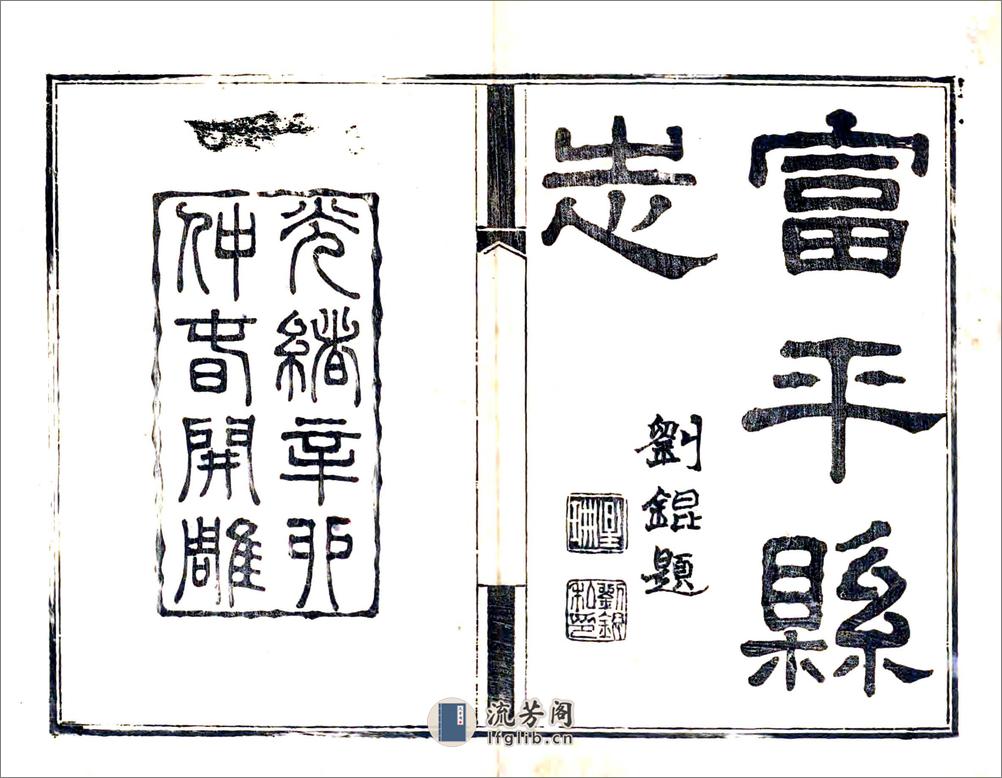 富平縣
志
劉錕題
劉錕
私印
光緒辛卯
仲春開雕
流芳阁
lfglib.cn